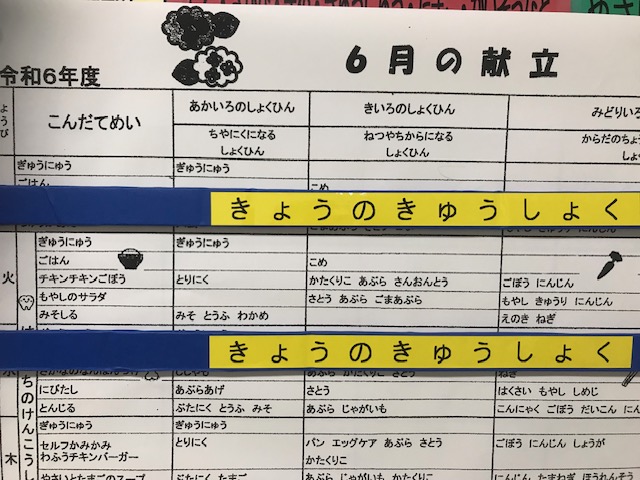 令和6年度
6月の献立
ようび
こんだてめい
あかいろのしょくひん
きいろのしょくひん
みどりいろ
ちやにくになる
しょくひん
ねつやちからになる
しょくひん
からだのちょ
しょ
ぎゅうにゅう ぎゅうにゅう
ごはん こめ
きょうのきゅうしょく
火
ぎゅうにゅう ぎゅうにゅう
ごはん こめ
チキンチキンごぼう とりにく かたくりこ あぶら さんおんとう ごぼう にんじん
もやしのサラダ さとう あぶら ごまあぶら もやし きゅうり にんじん
みそしる みそ とうふ わかめ えのき ねぎ
きょうのきゅうしょく
ちのけんこうし
にびたし あぶらあげ さとう はくさい もやし しめじ
とんじる ぶたにく とうふ みそ あぶら じゃがいも こんにゃく ごぼう だいこん にん
木
ぎゅうにゅう ぎゅうにゅう
セルフかみかみ とりにく パン エッグケア あぶら さとう ごぼう にんじん しょうが
わふうチキンバーガー かたくりこ
やさいとたまごのスープ ぶたにく たまご あぶら じゃがいも かたくりこ にんじん たまねぎ ほうれんそう